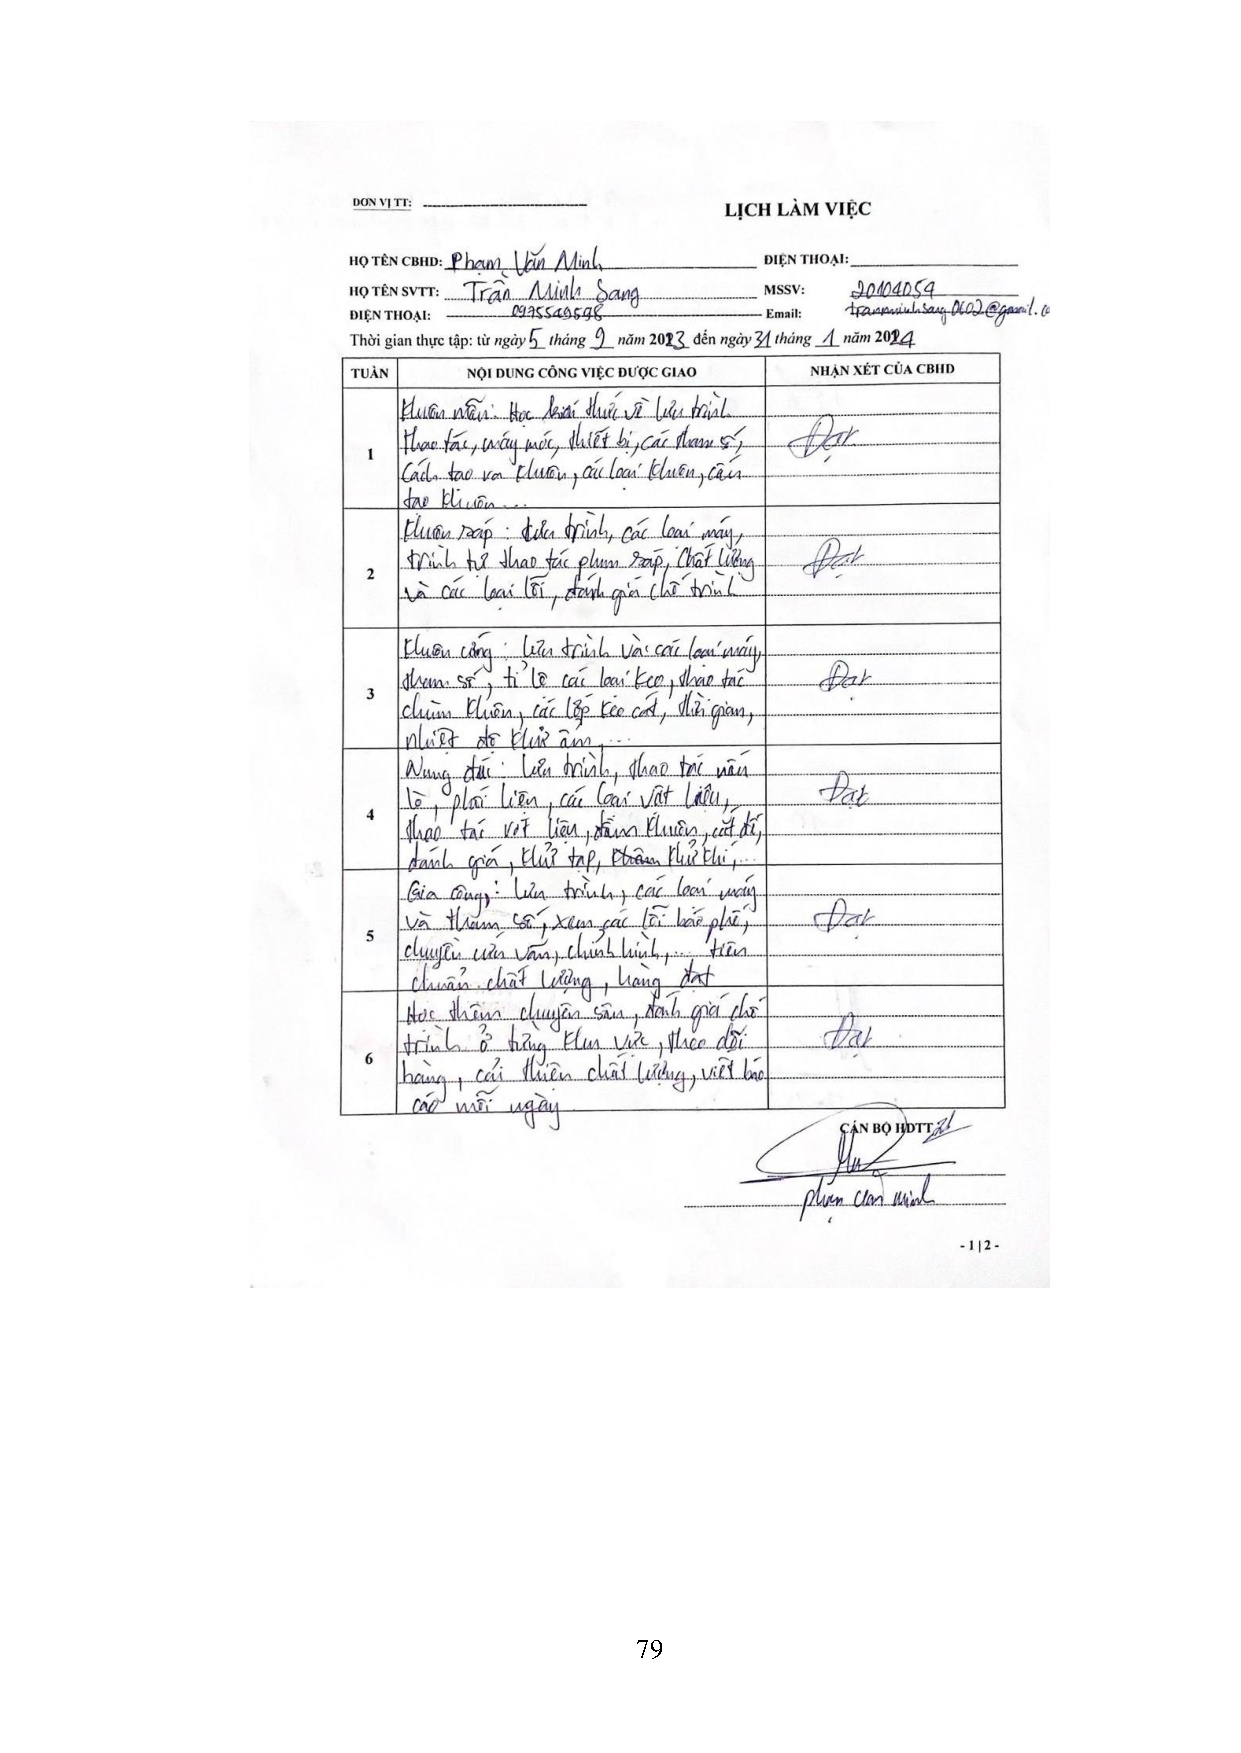 ĐƠN VỊ TT:
LỊCH LÀM VIỆC
HỌ TÊN CBHD: Phạm Văn Minh ĐIỆN THOẠI:
HỌ TÊN SVTT: Trần Minh Sang MSSV: 20104054
ĐIỆN THOẠI: 0975549598 Email: tranminhsang0602@gmail.c
Thời gian thực tập: từ ngày 5 tháng 9 năm 2023 đến ngày 31 tháng 1 năm 2024
TUẦN NỘI DUNG CÔNG VIỆC ĐƯỢC GIAO NHẬN XÉT CỦA CBHD
1
Khuôn mẫu: Học kiến thức về lưu trình
thao tác, máy móc, thiết bị, các tham số,
Cách tạo ra khuôn, các loại khuôn, cấu
tạo khuôn...
Đạt
2
Khuôn sáp: lưu trình, các loại máy,
trình tự thao tác phun sáp, chất lượng
và các loại lỗi, đánh giá chế trình
Đạt
3
Khuôn cứng: lưu trình và các loại máy,
tham số, tỉ lệ các loại keo, thao tác
chùm khuôn, các lớp keo cát, thời gian,
nhiệt độ khử ẩm,...
Đạt
4
Nung đúc: lưu trình, thao tác nấu
lò, phối liệu, các loại vật liệu,
thao tác vớt liệu, khuôn, cắt
đánh giá, khử tạp, khử khí,...
Đạt
5
Gia công: lưu trình, các loại máy
và tham số, xem các lỗi báo phế,
chuyền chỉnh hình,... tiêu
chuẩn chất lượng, hàng đạt
Đạt
6
Học thêm chuyên sâu, đánh giá chế
trình ở từng khu vực, theo dõi
hàng, cải thiện chất lượng, viết báo
cáo mỗi ngày
Đạt
CÁN BỘ HDTT
Phạm Văn Minh
- 1 | 2 -
79